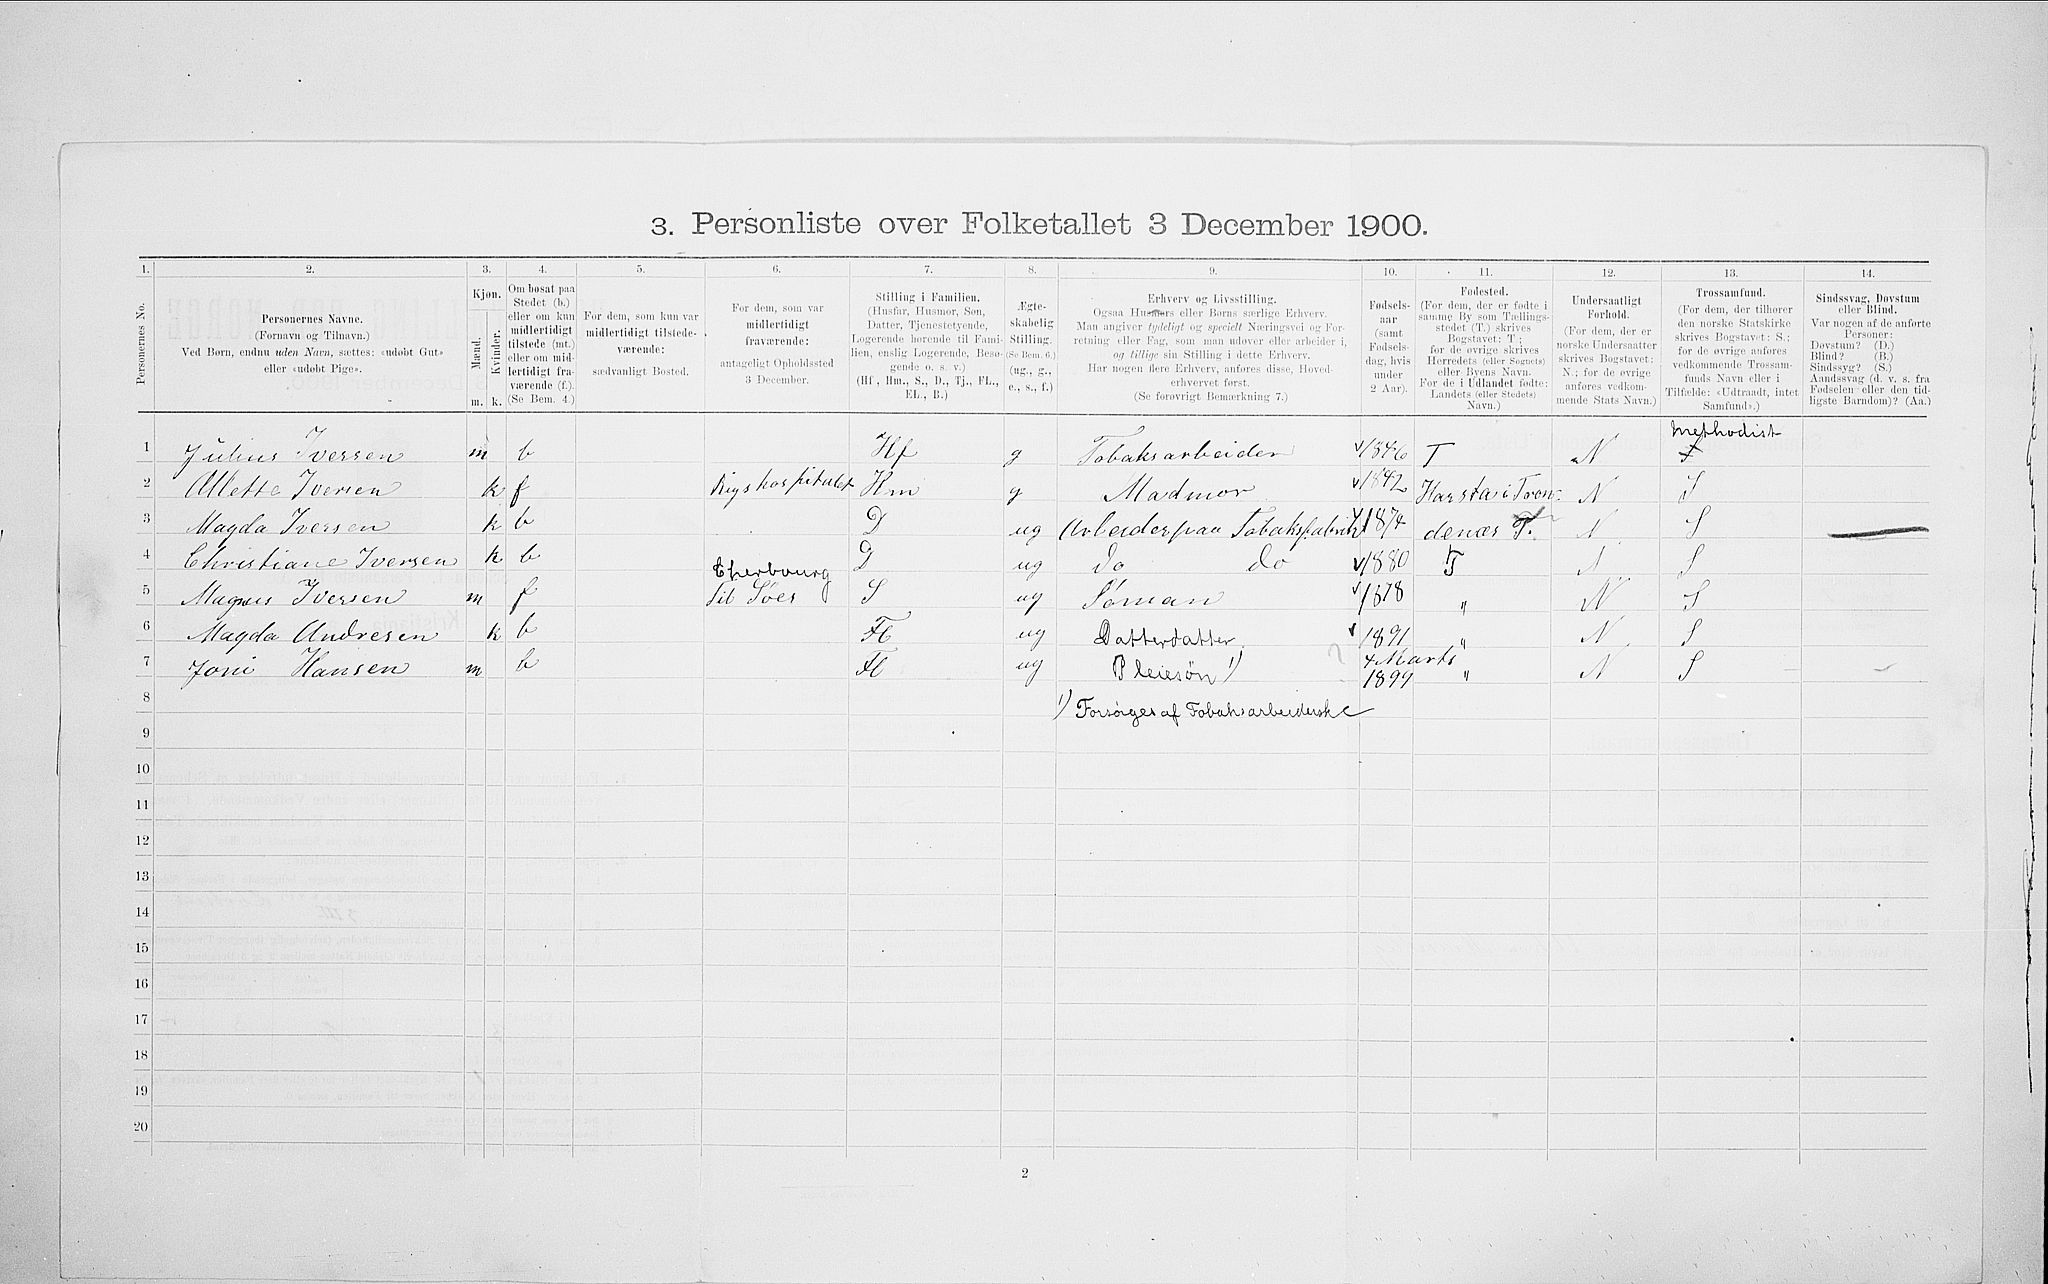 3. Personliste over Folketallet 3 December 1900.
1. 2. 3. 4. 5. 6. 7. 8. 9. 10. 11. 12. 13. 14.
Personernes No.
Personernes Navne.
(Fornavn og Tilnavn.)
Ved Børn, endnu uden Navn, sættes: «udøbt Gut»
eller «udøbt Pige».
Kjøn.
Mænd.
Kvinder.
m. k.
Om bosat paa
Stedet (b.)
eller om kun
midlertidigt
tilstede (mt.)
eller om mid-
lertidigt fra-
værende (f.).
(Se Bem. 4.)
For dem, som kun var
midlertidigt tilstede-
værende:
sædvanligt Bosted.
For dem, som var
midlertidigt
fraværende:
antageligt Opholdssted
3 December.
Stilling i Familien.
(Husfar, Husmor, Søn,
Datter, Tjenestetyende,
Logerende hørende til Fami-
lien, enslig Logerende, Besø-
gende o. s. v.)
(Hf, Hm., S., D., Tj., FL.,
EL., B.)
Ægte-
skabelig
Stilling.
(Se Bem. 6.)
(ug., g.,
e., s., f.)
Erhverv og Livsstilling.
Ogsaa Husmors eller Børns særlige Erhverv.
Man angiver tydeligt og specielt Næringsvei og For-
retning eller Fag, som man udøver eller arbeider i,
og tillige sin Stilling i dette Erhverv.
Har nogen flere Erhverv, anføres disse, Hoved-
erhvervet først.
(Se forøvrigt Bemærkning 7.)
Fødsels-
aar
(samt
Fødsels-
dag, hvis
under
2 Aar).
Fødested.
(For dem, der er fødte i
samme By som Tællings-
stedet (T.) skrives
Bogstavet: T;
for de øvrige skrives
Herredets (eller Sognets)
eller Byens Navn.
For de i Udlandet fødte:
Landets (eller Stedets)
Navn.)
Undersaatligt
Forhold.
(For dem, der er
norske Undersaatter
skrives Bogstavet:
N.; for de øvrige
anføres vedkom-
mende Stats Navn.)
Trossamfund.
(For dem, der tilhører
den norske Statskirke
skrives Bogstavet: S.;
for de øvrige anføres
vedkommende Trossam-
funds Navn eller i
Tilfælde: «Udtraadt, intet
Samfund».)
Sindssvag, Døvstum
eller Blind.
Var nogen af de anførte
Personer:
Døvstum? (D.)
Blind? (B.)
Sindssyg? (S.)
Aandssvag (d. v. s. fra
Fødselen eller den tid-
ligste Barndom)? (Aa.)
1 Julius Iversen m b Hf g Tobaksarbeider 1846 T N Methodist
2 Allette Iversen k f Rigshospitalet Hm g Madmor 1842 Harsta i Tron- N S
3 Magda Iversen k b D ug Arbeider paa Tobaksfabrik 1874 denæs T. N S
4 Christiane Iversen k b D ug Do Do 1880 T N S
5 Magnus Iversen m f Cherbourg Til Søes S ug Søman 1878 " N S
6 Magda Andresen k b Fl ug Datterdatter 1891 " N S
7 Joni Hansen m b Fl ug Pleiesøn 1) 4 Marts 1899 " N S
8 1) Forsørges af Tobaksarbeiderske
9
10
11
12
13
14
15
16
17
18
19
20
2